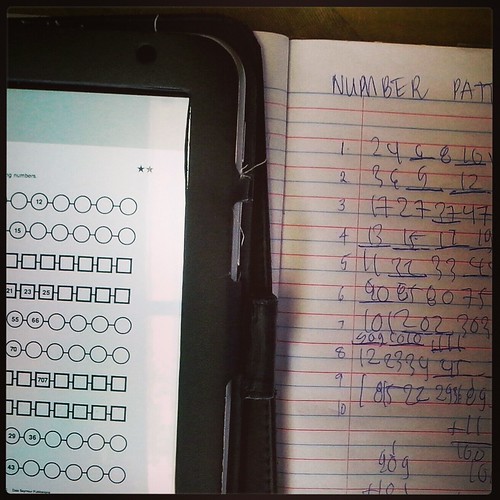 ng numbers.
12
15
21 23 25
55 66
70
707
29 36
43
NUMBER PATT
1 2 4 6 8 10
2 3 6 9 12
3 17 27 37 47
4 13 15 17 19
5 11 22 33 44
6 90 85 80 75
7 101 202 303
909 1010 1111
8 12 23 34 45
9
10
+11
909
+101